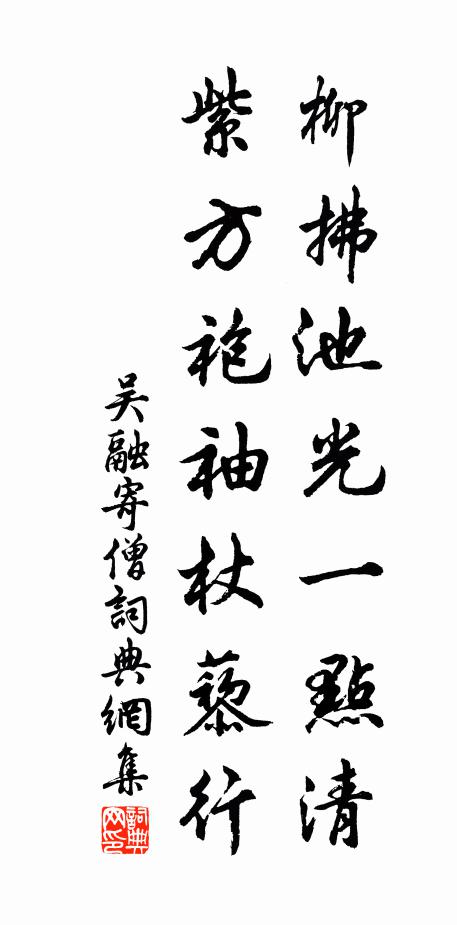 柳拂池光一點清
紫方袍袖杖藜行
吴融寄僧詞典網集
詞典网印